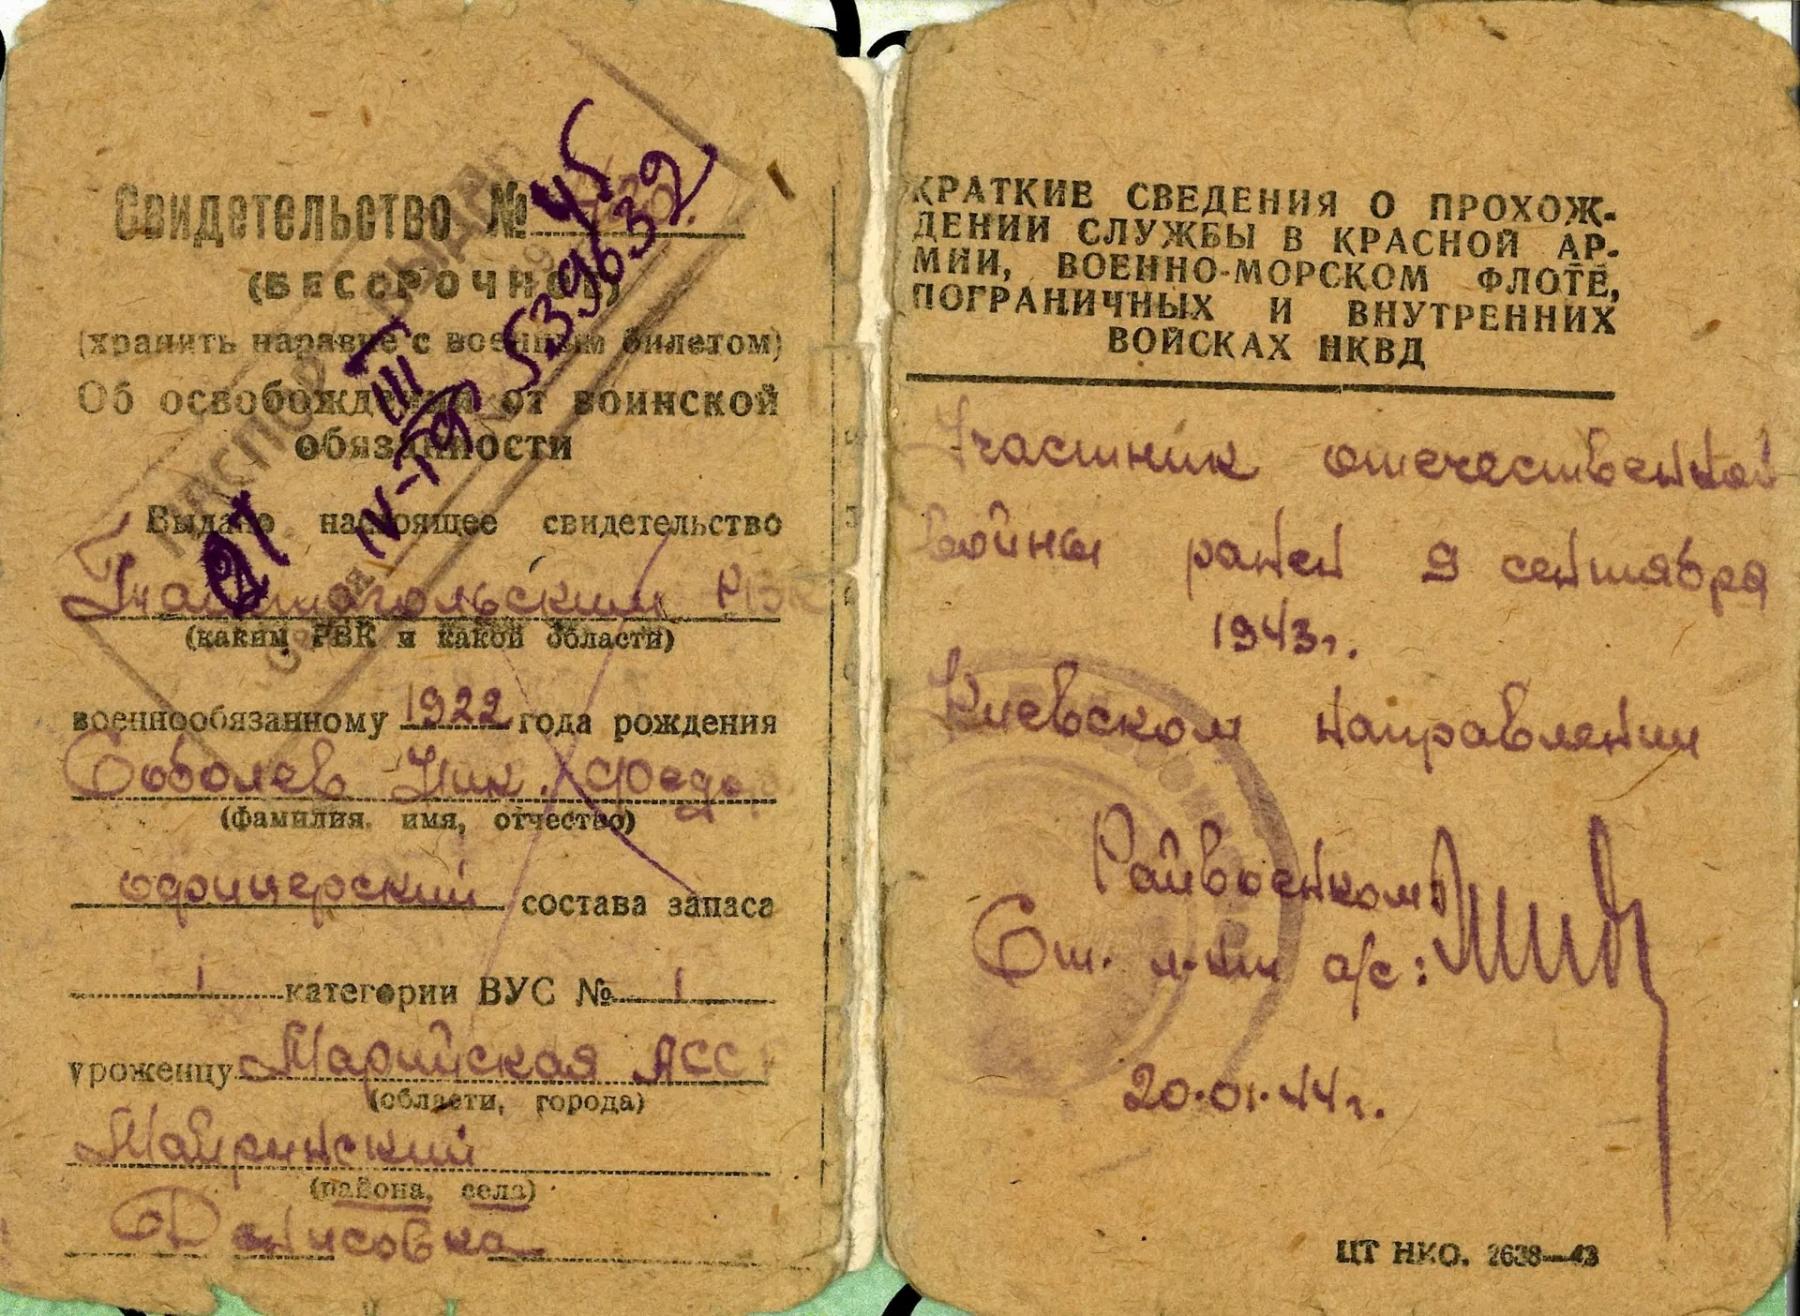 Свидетельство № 45
(БЕССРОЧНОЕ)
(хранить наравне с военным билетом)
Об освобождении от воинской
обязанности
ПАСПОРТ ВЫДАН
III
IV-ТЯ № 539632
21
Выдано настоящее свидетельство
РВК
(каким РВК и какой области)
военнообязанному 1922 года рождения
Соболев Ник. Федо
(фамилия, имя, отчество)
офицерский состава запаса
1 категории ВУС № 1
уроженцу Марийская АССР
(области, города)
(района, села)
Денисовка
КРАТКИЕ СВЕДЕНИЯ О ПРОХОЖ-
ДЕНИИ СЛУЖБЫ В КРАСНОЙ АР-
МИИ, ВОЕННО-МОРСКОМ ФЛОТЕ,
ПОГРАНИЧНЫХ И ВНУТРЕННИХ
ВОЙСКАХ НКВД
Участник отечественной
войны ранен 9 сентября
1943г.
Киевском направлении
Райвоенком
Ст. л-нт а/с:
20.01.44г.
ЦТ НКО. 2638—43